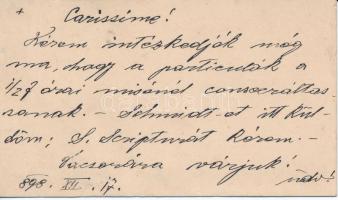 +
Carissime!
Kérem intézkedjék még
ma, hogy a particulák a
1/2 7 órai misénél consecráltas-
sanak. – Schmidt-et itt kül-
döm; S. Scripturát kérem. –
Vacsorára várjuk!
898. XII. 17. üdv!